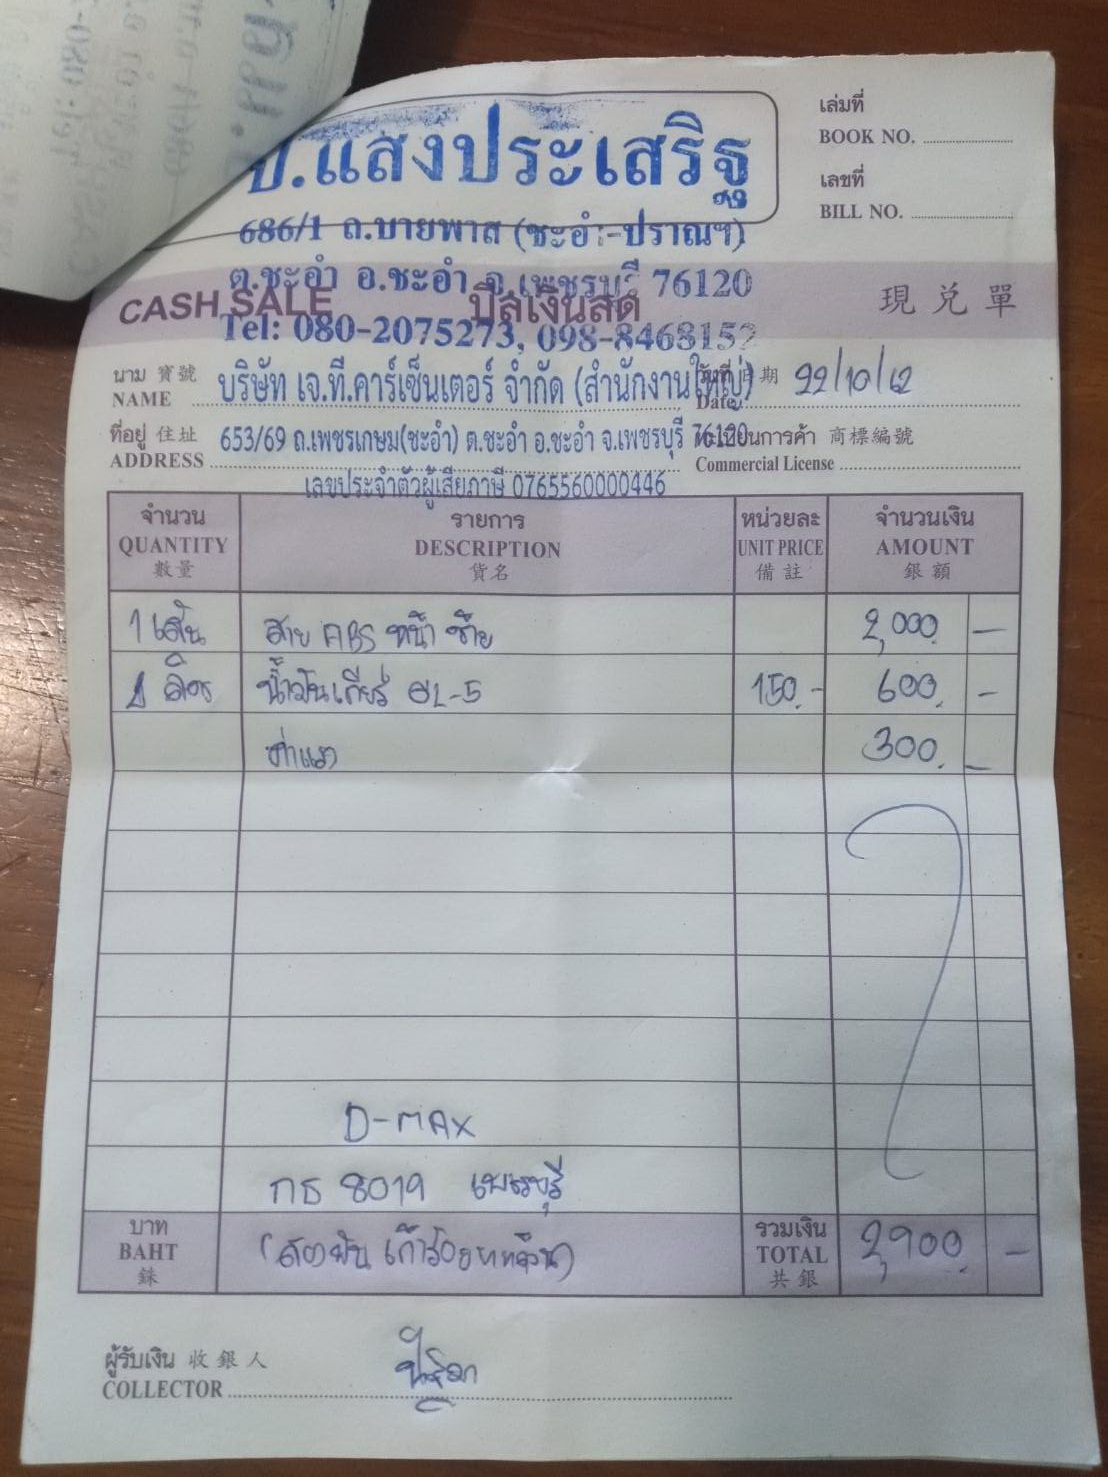 ป.แสงประเสริฐ
686/1 ถ.บายพาส (ชะอำ-ปราณฯ)
ต.ชะอำ อ.ชะอำ จ.เพชรบุรี 76120
Tel: 080-2075273, 098-8468152
เล่มที่
BOOK NO.
เลขที่
BILL NO.
CASH SALE บิลเงินสด 現兌單
นาม 寶號
NAME บริษัท เจ.ที.คาร์เซ็นเตอร์ จำกัด (สำนักงานใหญ่)
วันที่ 日期 22/10/62
Date
ที่อยู่ 住址
ADDRESS 653/69 ถ.เพชรเกษม(ชะอำ) ต.ชะอำ อ.ชะอำ จ.เพชรบุรี 76120
ทะเบียนการค้า 商標編號
Commercial License
เลขประจำตัวผู้เสียภาษี 0765560000446
จำนวน รายการ หน่วยละ จำนวนเงิน
QUANTITY DESCRIPTION UNIT PRICE AMOUNT
數量 貨名 備註 銀額
1 เส้น สาย ABS หน้า ซ้าย 2,000. —
ลิตร น้ำมันเกียร์ GL-5 150.- 600. –
ค่าแรง 300. –
D-MAX
กธ 8019 เพชรบุรี
บาท รวมเงิน
BAHT (สองพันเก้าร้อยบาทถ้วน) TOTAL 2,900. –
銖 共銀
ผู้รับเงิน 收銀人
COLLECTOR